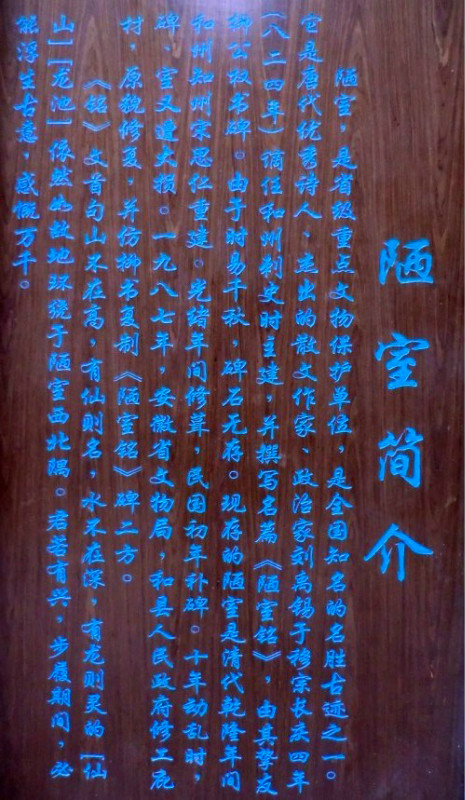 陋室简介
陋室，是省级重点文物保护单位，是全国知名的名胜古迹之一。
它是唐代优秀诗人、杰出的散文作家、政治家刘禹锡于穆宗长庆四年
（八二四年）谪任和州刺史时主建，并撰写名篇《陋室铭》，由其挚友
柳公权书碑。由于时易千秋，碑石无存。现存的陋室是清代乾隆年间
和州知州宗思仁重建。光绪年间修葺，民国初年补碑。十年动乱时，
碑、室又遭大损。一九八七年，安徽省文物局，和县人民政府修工庀
材，原貌修复，并仿柳书复制《陋室铭》碑二方。
《铭》文首句山不在高，有仙则名，水不在深，有龙则灵的「仙
山」「龙池」依然如故地环绕于陋室西北隅。君若有兴，步履期间，必
能浮生古意，感慨万千。